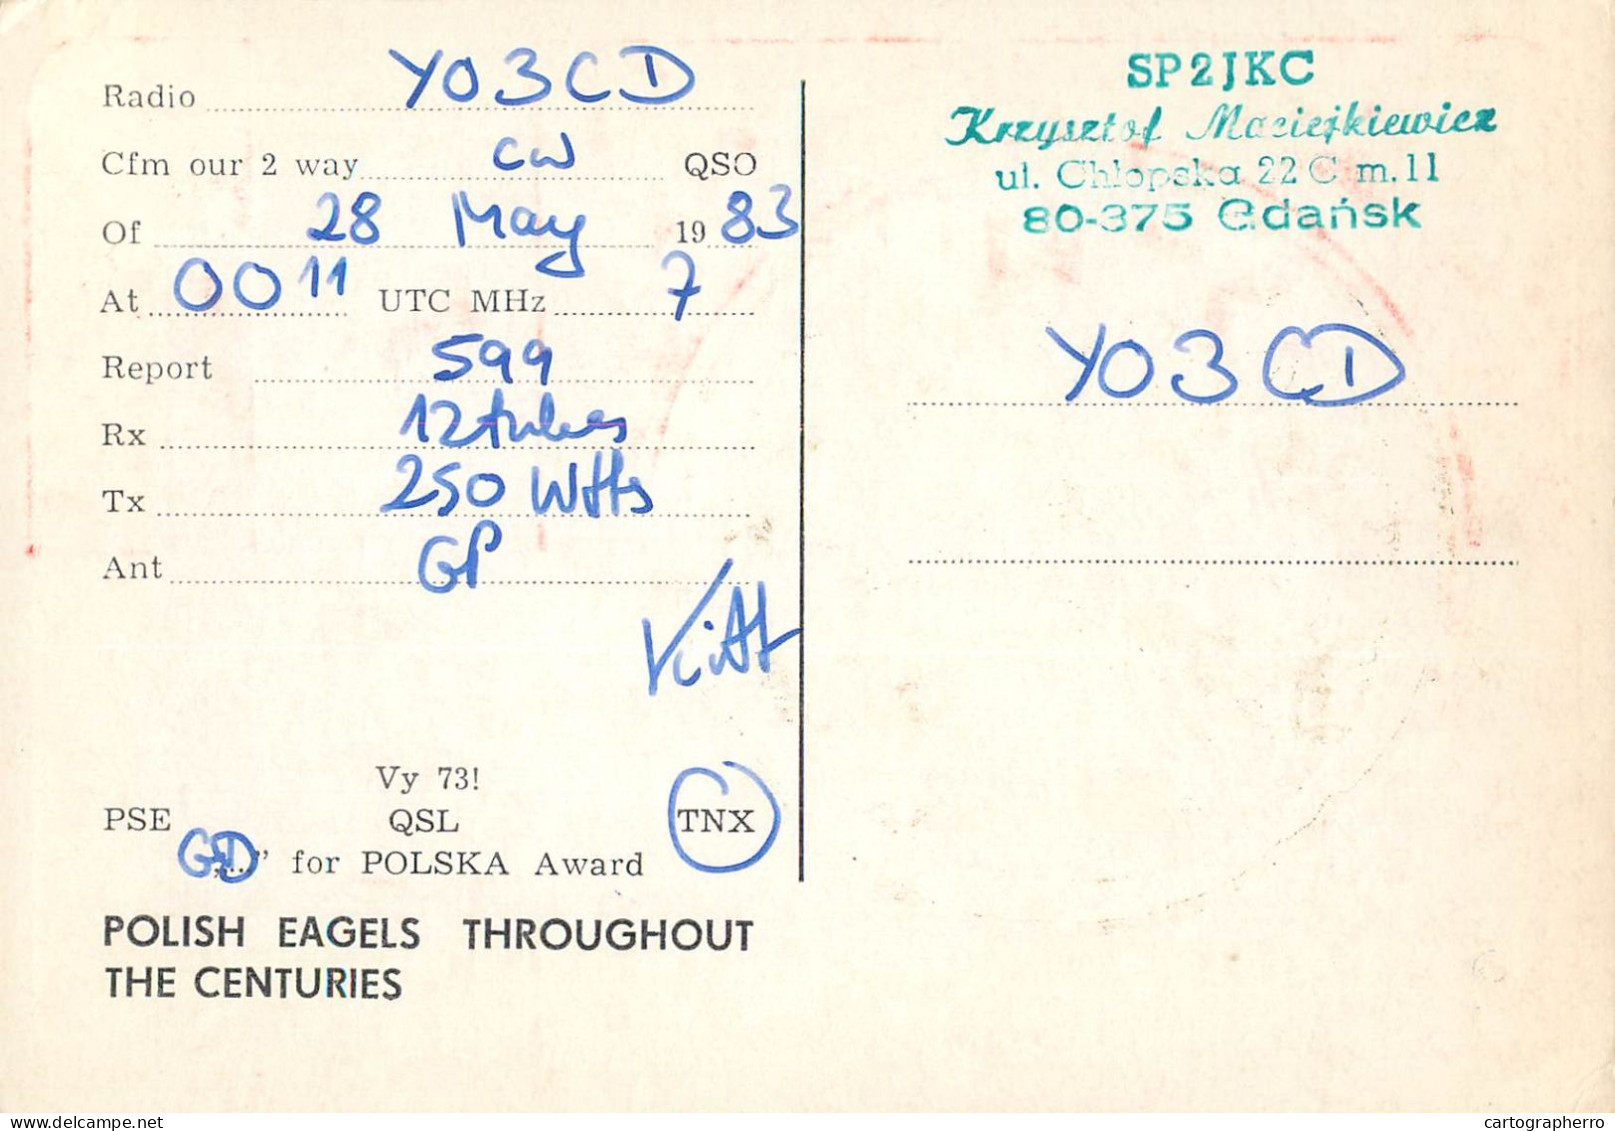 Radio YO3CD
Cfm our 2 way CW QSO
Of 28 May 1983
At 0011 UTC MHz 7
Report 599
Rx 12 tubes
Tx 250 Wtts
Ant GP
Vy 73!
PSE QSL TNX
„GD” for POLSKA Award
POLISH EAGELS THROUGHOUT
THE CENTURIES
SP2JKC
Krzysztof Maciejkiewicz
ul. Chłopska 22 C m. 11
80-375 Gdańsk
YO3CD
www.delcampe.net
cartographerro